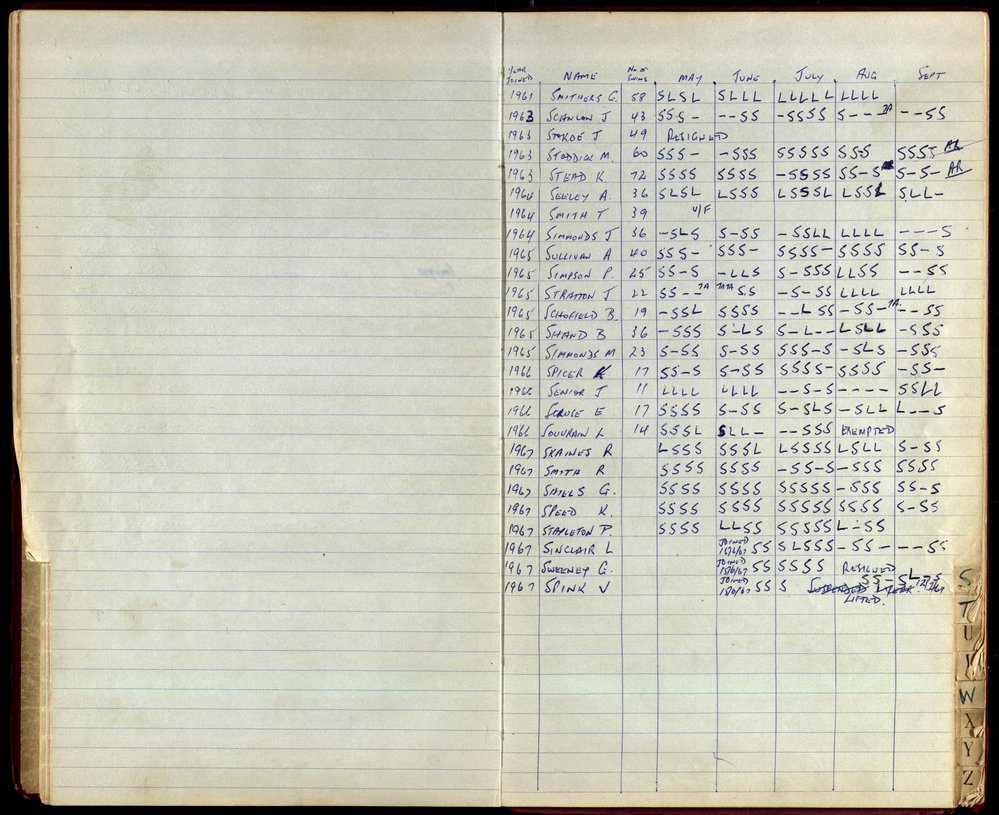 YEAR JOINED NAME No. OF SWIMS MAY JUNE JULY AUG SEPT
1961 SMITHERS G. 58 SLSL SLLL LLLLL LLLL
1963 SCANLON J 43 SSS- --SS -SSSS S--- --SS
1963 STOKOE J 49 RESIGNED
1963 STODDICK M. 60 SSS- -SSS SSSSS SSS SSSS AR
1963 STEAD K 72 SSSS SSSS -SSSS SS-S S-S- AR
1964 SEELEY A. 36 SLSL LSSS LSSSL LSSL SLL-
1964 SMITH T 39 U/F
1964 SIMMONDS J 36 -SLS S-SS -SSLL LLLL ---S
1965 SULLIVAN A 40 SSS- SSS- SSSS- SSSS SS-S
1965 SIMPSON P. 25 SS-S -LLS S-SSS LLSS --SS
1965 STRATTON J 22 SS-- TA TATA SS -S-SS LLLL LLLL
1965 SCHOFIELD B. 19 -SSL SSSS --LSS -SS- TA. --SS
1965 SHAND B 36 -SSS S-LS S-L-- LSLL -SSS
1965 SIMMONDS M 23 S-SS S-SS SSS-S -SLS -SSS
1966 SPICER K 17 SS-S S-SS SSSS- SSSS -SS-
1966 SENIOR J 11 LLLL LLLL --S-S ---- SSLL
1966 SCRUSE E 17 SSSS S-SS S-SLS -SLL L--S
1966 SOUVRAIN L 14 SSSL SLL- --SSS EXEMPTED
1967 SKAINES R LSSS SSSL LSSSS LSLL S-SS
1967 SMITH R SSSS SSSS -SS-S -SSS SSSS
1967 SHIELS G. SSSS SSSS SSSSS -SSS SS-S
1967 SPEED K. SSSS SSSS SSSSS SSSS S-SS
1967 STAPLETON P. SSSS LLSS SSSSS L-SS
1967 SINCLAIR L JOINED 15/6/67 SS SLSSS -SS- --SS
1967 SWEENEY G. JOINED 15/6/67 SS SSSS RESIGNED
1967 SPINK V JOINED 15/6/67 SS S SS-SL-S
SUSPENDED 1 YEAR
LIFTED.
S
T
U
W
X
Y
Z